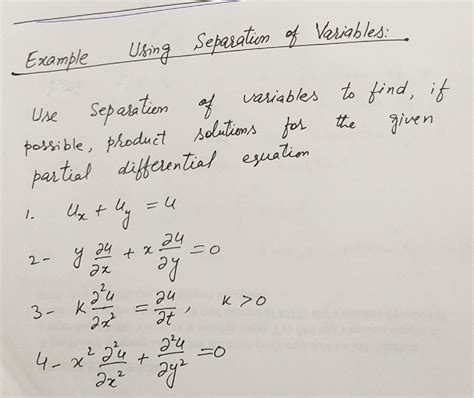 Example Using Separation of Variables:
Use Separation of variables to find, if
possible, product solutions for the given
partial differential equation
1. u_x + u_y = u
2- y ∂u/∂x + x ∂u/∂y = 0
3- k ∂²u/∂x² = ∂u/∂t, k > 0
4- x² ∂²u/∂x² + ∂²u/∂y² = 0